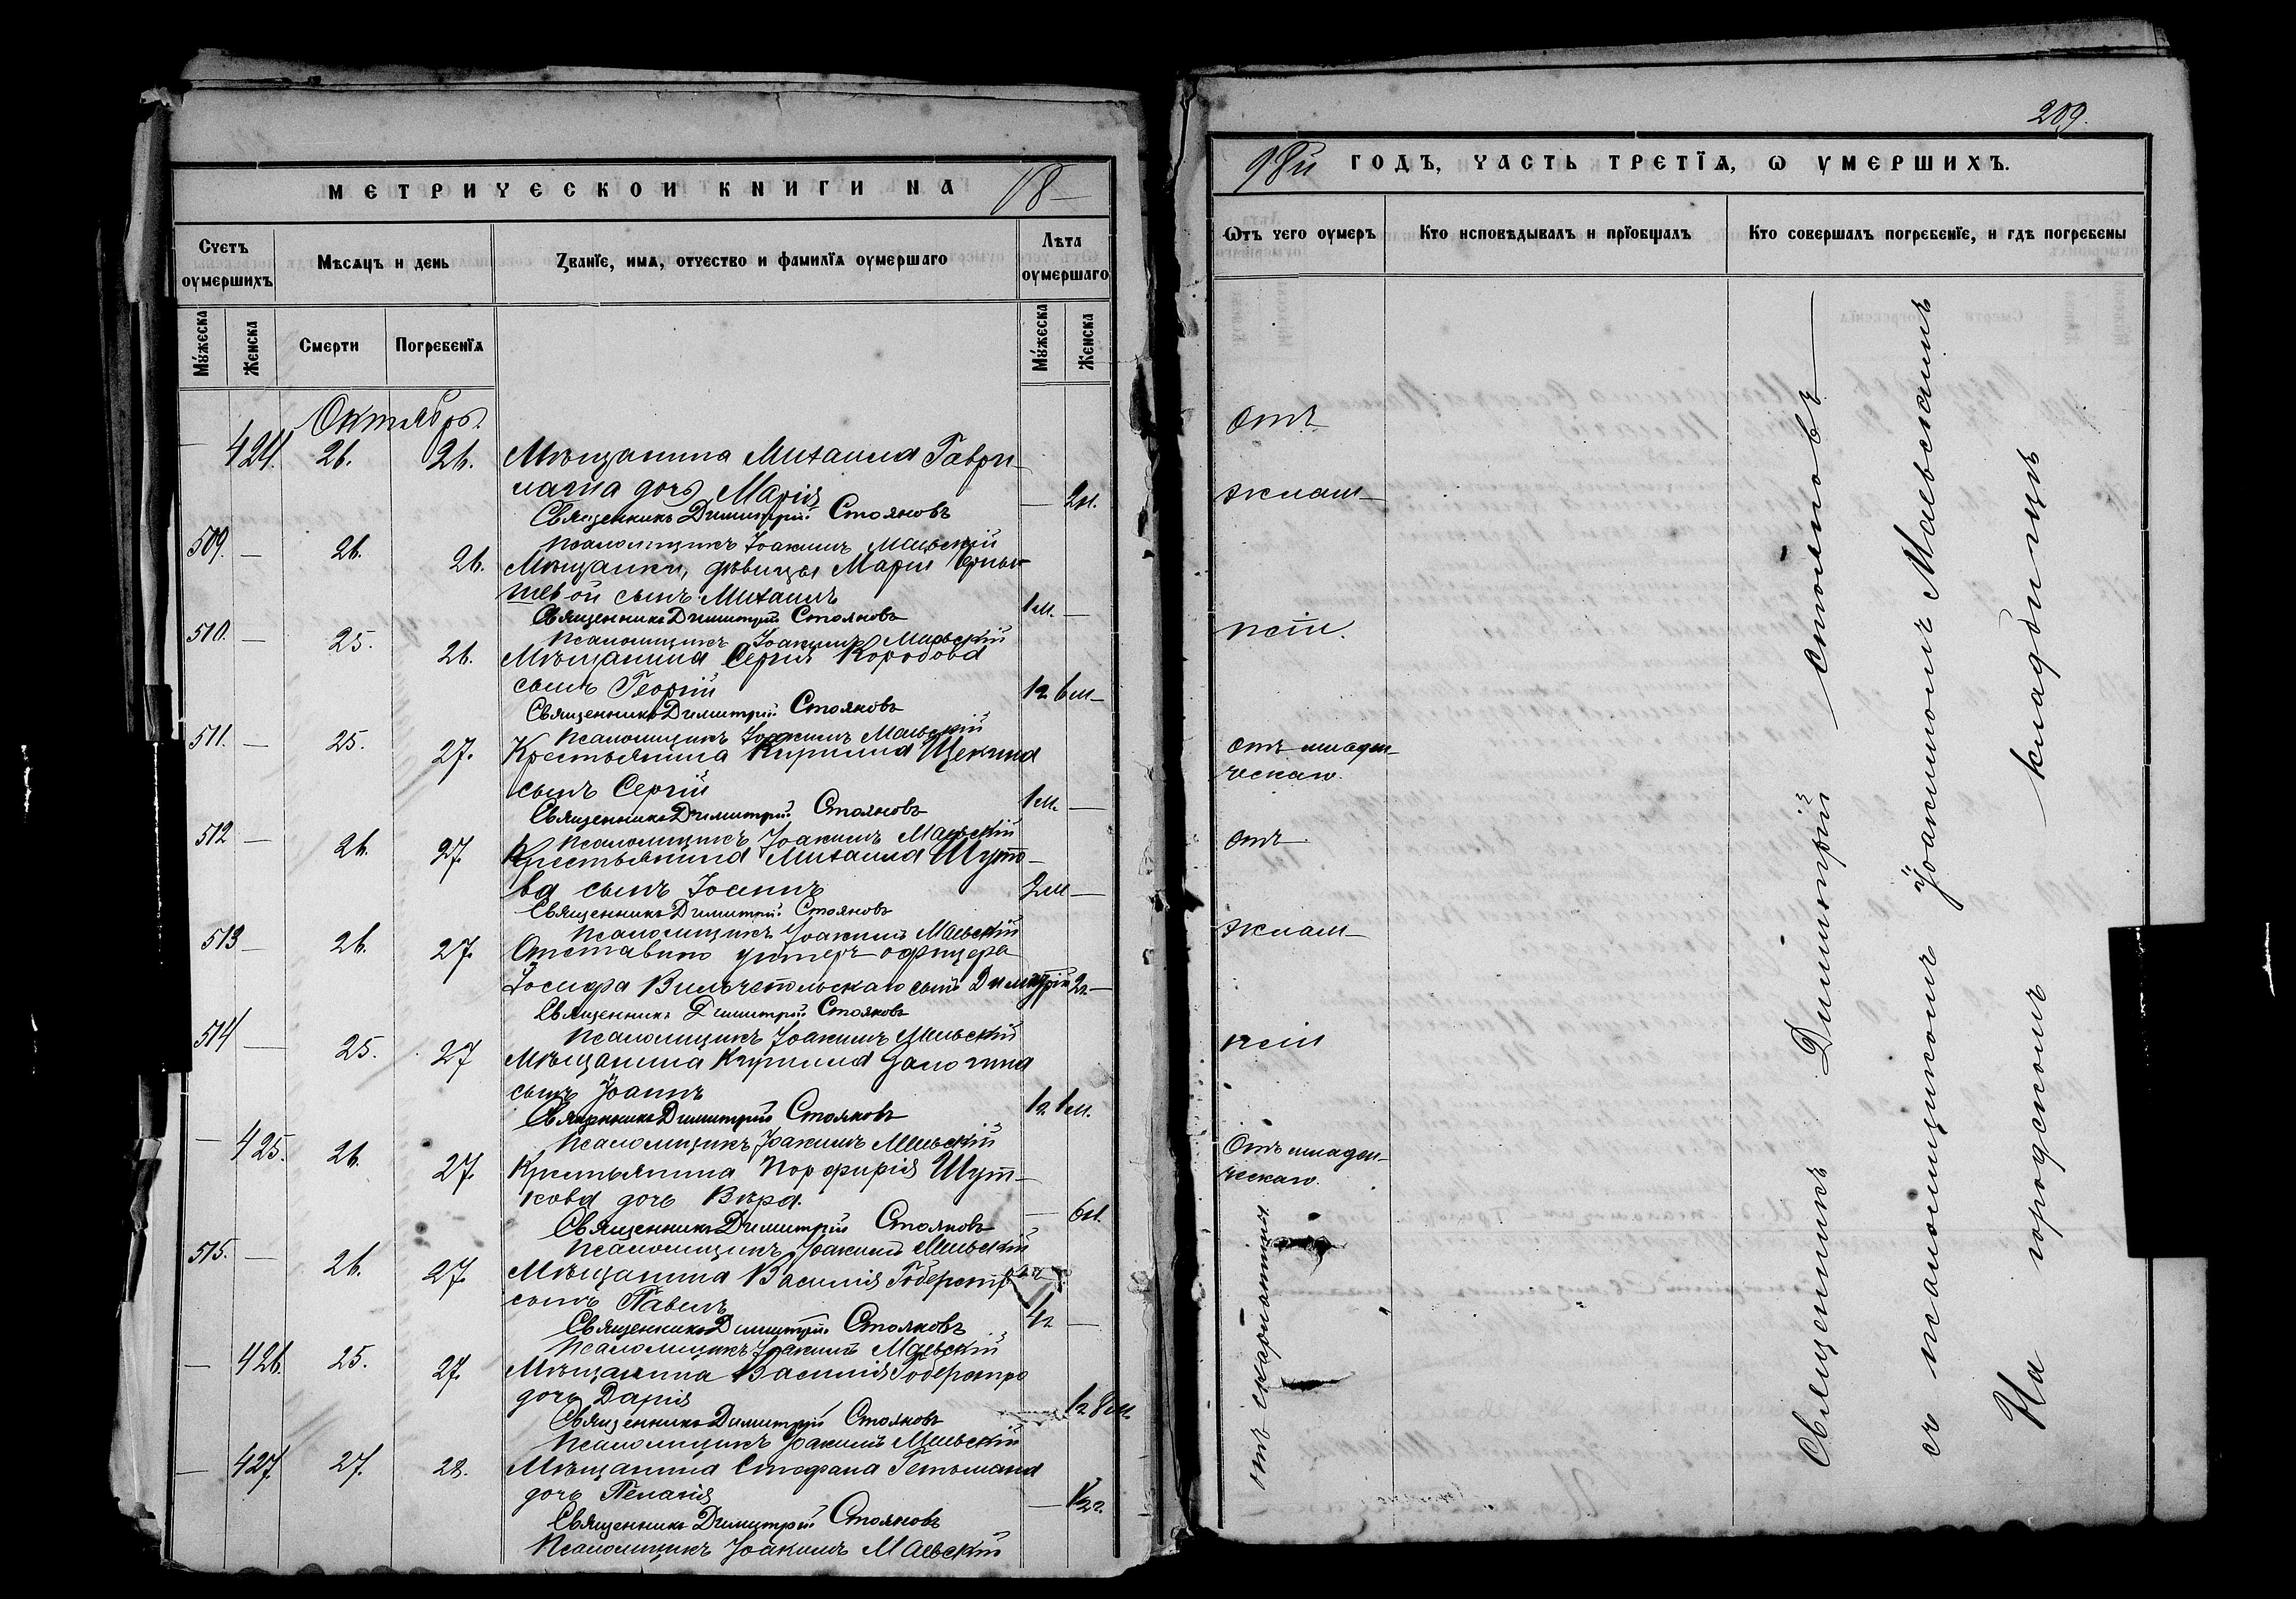 МЕТРИЧЕСКОЙ КНИГИ НА 18
Счетъ оумершихъ
Мѣсяцъ и день
Званїе, имя, отчество и фамилїя оумершаго
Лѣта оумершаго
Мꙋжеска
Женска
Смерти
Погребенїя
Мꙋжеска
Женска
Октябрь.
— 424. 26. 26. Мѣщанина Михаила Гаври-
дочь Марія — 2м.
Священникъ Димитрій Стояновъ
Псаломщикъ Іоакимъ Маевскій
509. — 26. 26. Мѣщанки, дѣвицы Маріи Черны-
шевой сынъ Михаилъ 1м. —
Священникъ Димитрій Стояновъ
Псаломщикъ Іоакимъ Маевскій
510. — 25. 26. Мѣщанина Сергія Коробова
сынъ Георгій 1г. 6м —
Священникъ Димитрій Стояновъ
Псаломщикъ Іоакимъ Маевскій
511. — 25. 27. Крестьянина Кирилла Щекина
сынъ Сергій 1м. —
Священникъ Димитрій Стояновъ
Псаломщикъ Іоакимъ Маевскій
512 — 26. 27. Крестьянина Михаила Шуто-
ва сынъ Іоаннъ 2м —
Священникъ Димитрій Стояновъ
Псаломщикъ Іоакимъ Маевскій
513 — 26. 27. Отставного унтеръ-офицера
Іосифа сынъ Димитрій 2г. —
Священникъ Димитрій Стояновъ
Псаломщикъ Іоакимъ Маевскій
514 — 25. 27 Мѣщанина Кирилла
сынъ Іоаннъ 1г. 1м.
Священникъ Димитрій Стояновъ
Псаломщикъ Іоакимъ Маевскій
— 425. 26. 27. Крестьянина Порфирія Шут-
кова дочь Вѣра. — 6м.
Священникъ Димитрій Стояновъ
Псаломщикъ Іоакимъ Маевскій
515. — 26. 27. Мѣщанина Василія
сынъ Павелъ 4г —
Священникъ Димитрій Стояновъ
Псаломщикъ Іоакимъ Маевскій
— 426. 25. 27. Мѣщанина Василія
дочь Дарія 1г. 8м.
Священникъ Димитрій Стояновъ
Псаломщикъ Іоакимъ Маевскій
— 427. 27. 28. Мѣщанина Стефана Гетьмана
дочь Пелагія — 1/2 г.
Священникъ Димитрій Стояновъ
Псаломщикъ Іоакимъ Маевскій
209.
98й ГОДЪ, ЧАСТЬ ТРЕТЇЯ, Ѡ УМЕРШИХЪ.
Ѿтъ чего оумеръ
Кто исповѣдывалъ и прїобщалъ
Кто совершалъ погребенїе, и гдѣ погребены
Отъ
эклам-
псіи.
Отъ младен-
ческаго.
Отъ
эклам-
псіи
Отъ младен-
ческаго.
Отъ скарлатины.
Священникъ Димитрій Стояновъ
съ псаломщикомъ Іоакимомъ Маевскимъ
На городскомъ кладбищѣ